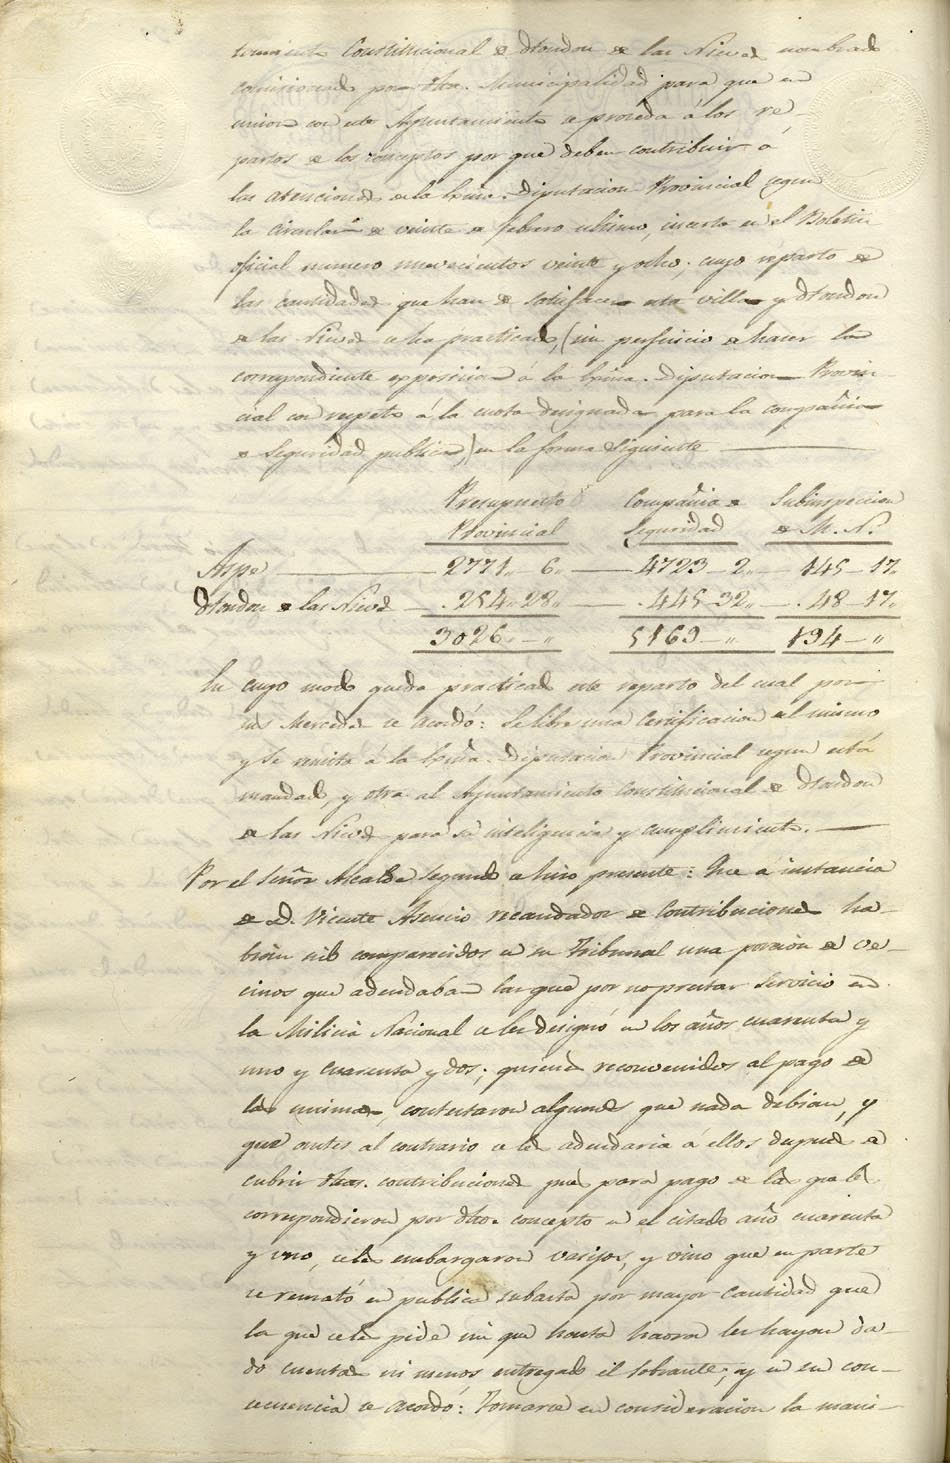 Constitucional de Hondon de las Nieves nombrado
comisionado por dha. Municipalidad para que en
union con este Ayuntamiento se proceda á los re-
partos de los conceptos por que deben contribuir á
las atenciones de la Exma. Diputacion Provincial segun
la circular de veinte de febrero ultimo, inserta en el Boletin
oficial numero nuevecientos veinte y ocho; cuyo reparto de
las cantidades que han de satisfacer esta villa y Hondon
de las Nieves se ha practicado, (sin perjuicio de hacer la
correspondiente exposicion á la Exma. Diputacion Provin-
cial con respeto á la cuota designada para la compañia
de Seguridad publica,) en la forma siguiente
Presupuesto Compañia de Subinspeccion
Provincial Seguridad de M. N.
Aspe 2771,, 6,, 4723 - 2,, 145 - 17,,
Hondon de las Nieves . 254,, 28,, . 445 - 32,, . 48 - 17,,
3026,, - ,, 5169 - ,, 194 - ,,
En cuyo modo queda practicado este reparto del cual por
sus Mercedes se acordó: Se libre una Certificacion del mismo
y se remita á la Exma. Diputacion Provincial segun está
mandado, y otra al Ayuntamiento Constitucional de Hondon
de las Nieves para su inteligencia y cumplimiento.
Por el Señor Alcalde Segundo se hizo presente: Que á instancia
de D. Vicente Asencio recaudador de Contribuciones ha-
bian sido comparecidos en su Tribunal una porcion de ve-
cinos que adeudaban las que por no prestar Servicio en
la Milicia Nacional se les designó en los años cuarenta y
uno y cuarenta y dos; quienes reconvenidos al pago de
las mismas, contestaron algunos que nada debian, y
que antes al contrario se les adeudaria á ellos despues de
cubrir dhas. contribuciones pues para pago de las que les
correspondieron por dho. concepto en el citado año cuarenta
y uno, se les embargaron vasijas, y vino que en parte
se remató en publica subasta por mayor cantidad que
la que se le pide sin que hasta haora les hayan da-
do cuentas ni menos entregado el sobrante; y en su con-
secuencia se acordó: Tomarse en consideracion la mani-